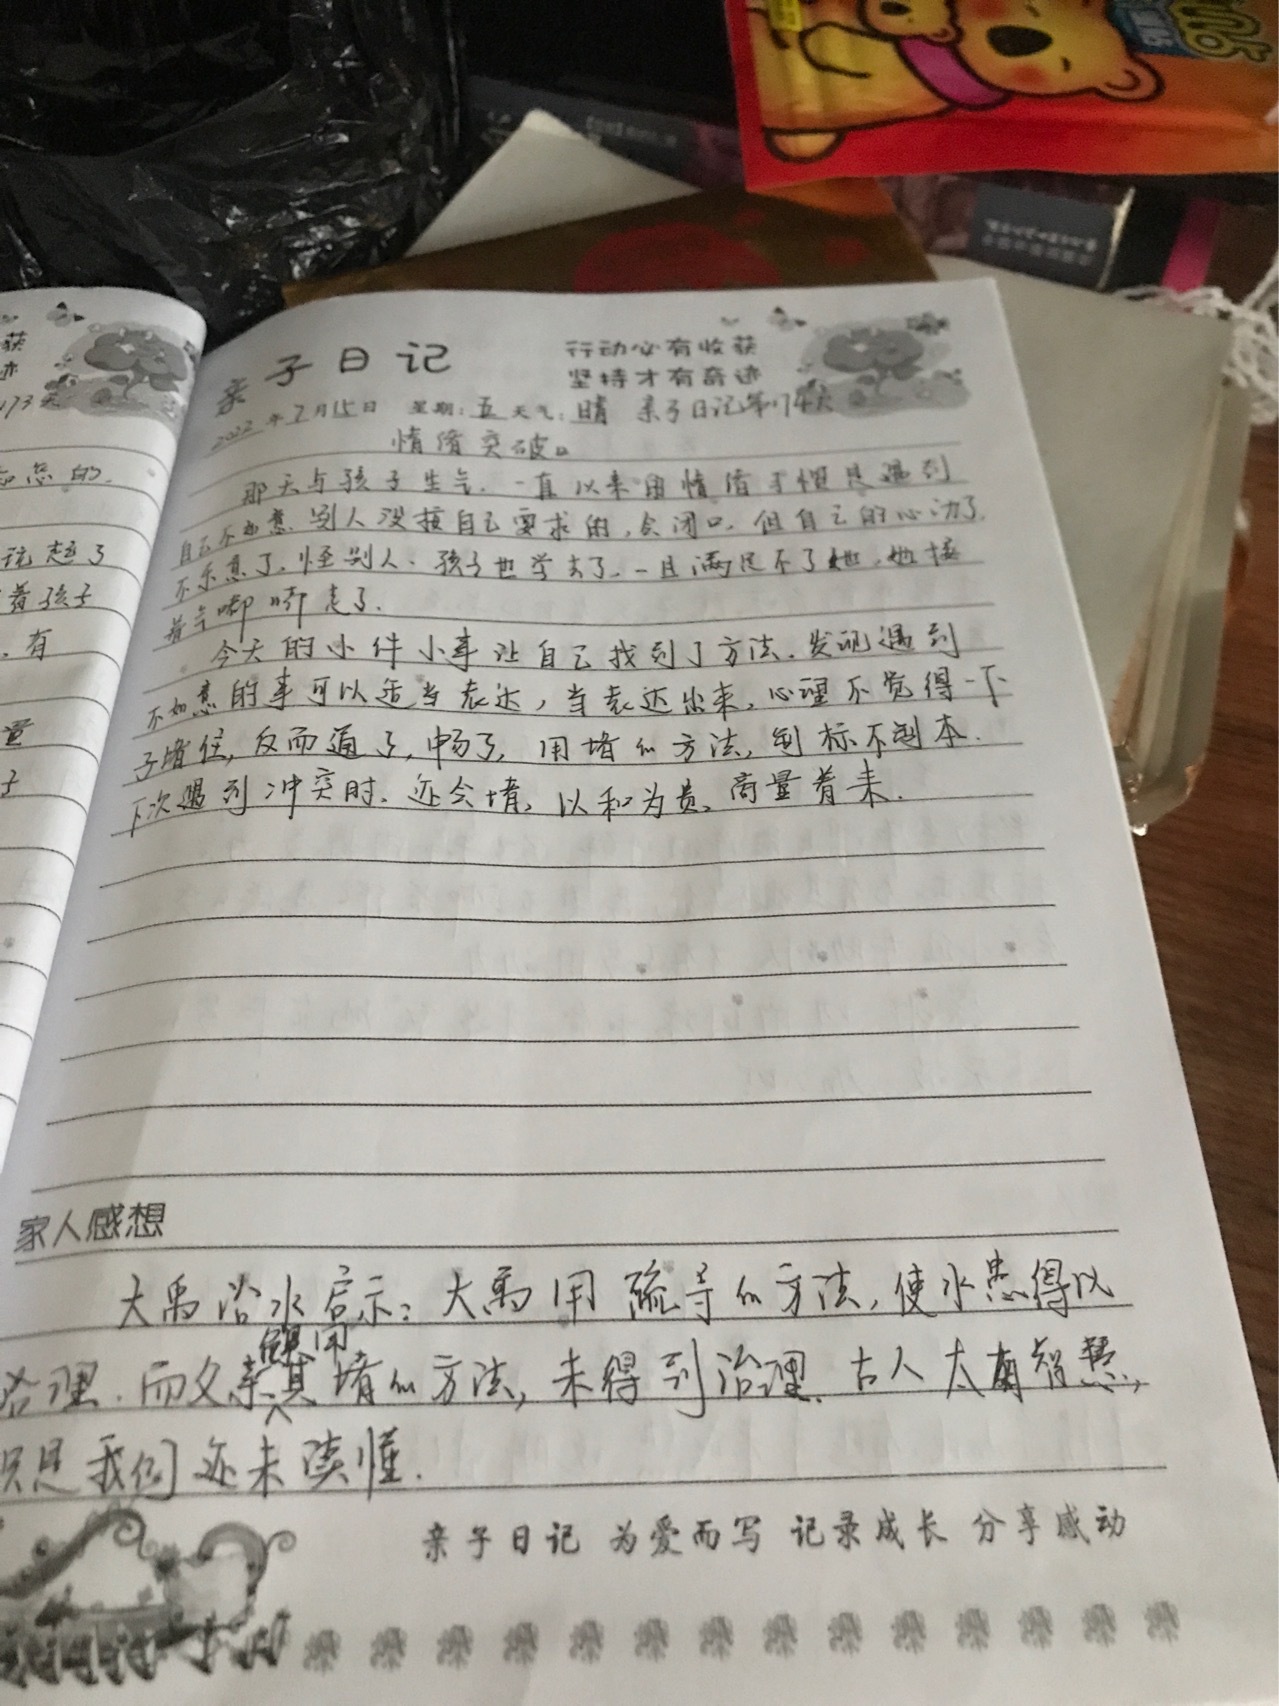 亲子日记
行动必有收获
坚持才有奇迹
2022年7月15日 星期:五 天气:晴 亲子日记第174天
情绪突破。
那天与孩子生气.一直以来用情绪习惯是遇到
自己不如意.别人没按自己要求的,会闭口.但自己的心动了.
不乐意了.怪别人.孩子也学去了.一旦满足不了她,她接
着气嘟嘟走了.
今天的小件小事让自己找到了方法.发现遇到
不如意的事可以适当表达,当表达出来,心理不觉得一下
子堵住,反而通了,畅了,用堵的方法,制标不制本.
下次遇到冲突时.还会堵,以和为贵,商量着来.
家人感想
大禹治水启示:大禹用疏导的方法,使水患得以
治理.而父亲想用其堵的方法,未得到治理.古人太有智慧,
只是我们还未读懂.
亲子日记 为爱而写 记录成长 分享感动
获
迹
173天
的.
说起了
着孩子
.有
量